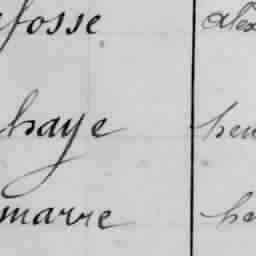 fosse alex
haye hen
marre he